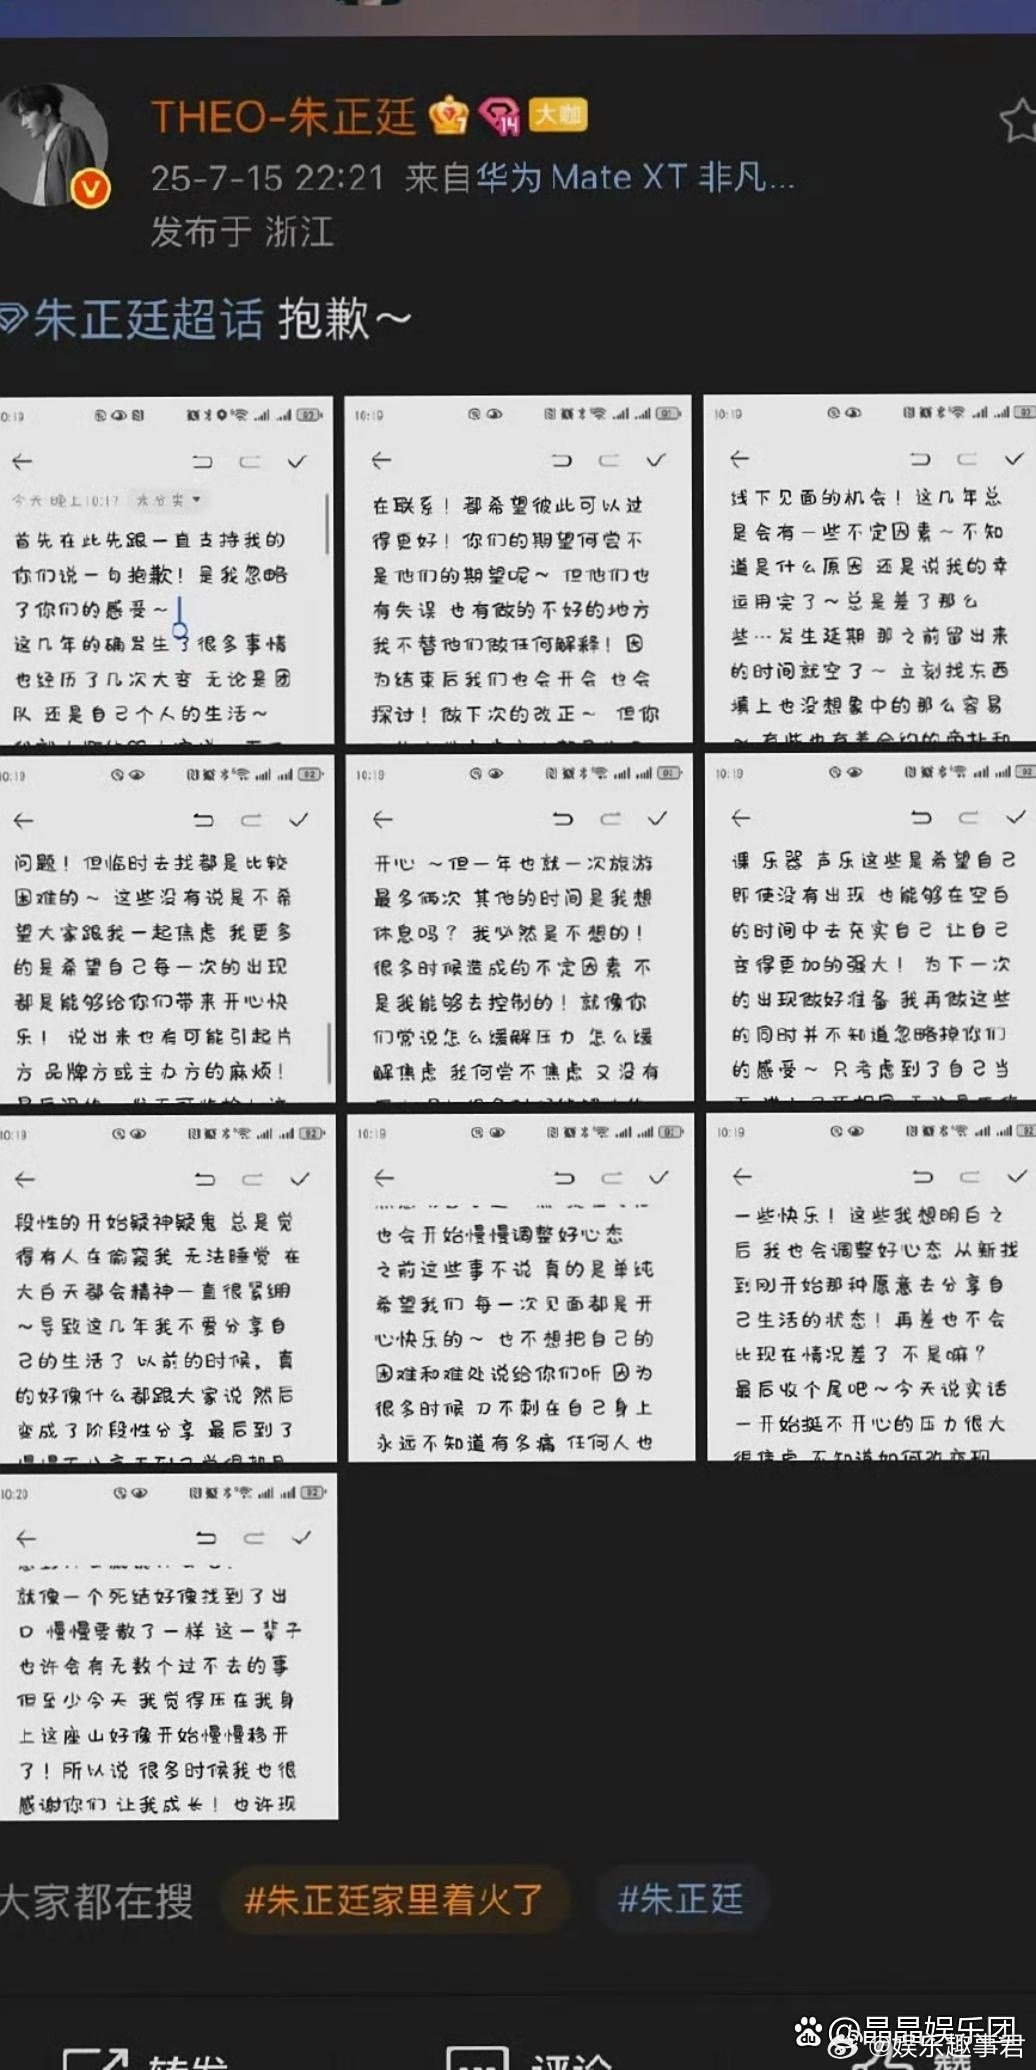 THEO-朱正廷 7 14 大咖
25-7-15 22:21 来自华为 Mate XT 非凡...
发布于 浙江
朱正廷超话 抱歉～
0:19
今天 晚上10:17 未分类
首先在此先跟一直支持我的
你们说一句抱歉！是我忽略
了你们的感受～
这几年的确发生了很多事情
也经历了几次大变 无论是团
队 还是自己个人的生活～
10:19
在联系！都希望彼此可以过
得更好！你们的期望何尝不
是他们的期望呢～ 但他们也
有失误 也有做的不好的地方
我不替他们做任何解释！因
为结束后我们也会开会 也会
探讨！做下次的改正～ 但你
10:19
线下见面的机会！这几年总
是会有一些不定因素～不知
道是什么原因 还是说我的幸
运用完了～总是差了那么
些…发生延期 那之前留出来
的时间就空了～ 立刻找东西
填上也没想象中的那么容易
～有些也有着合约的牵扯和
0:19
问题！但临时去找都是比较
困难的～ 这些没有说是不希
望大家跟我一起焦虑 我更多
的是希望自己每一次的出现
都是能够给你们带来开心快
乐！ 说出来也有可能引起片
方 品牌方或主办方的麻烦！
10:19
开心 ～但一年也就一次旅游
最多俩次 其他的时间是我想
休息吗？我必然是不想的！
很多时候造成的不定因素 不
是我能够去控制的！就像你
们常说怎么缓解压力 怎么缓
解焦虑 我何尝不焦虑 又没有
10:19
课 乐器 声乐这些是希望自己
即使没有出现 也能够在空白
的时间中去充实自己 让自己
变得更加的强大！ 为下一次
的出现做好准备 我再做这些
的同时并不知道忽略掉你们
的感受～ 只考虑到了自己当
10:19
段性的开始疑神疑鬼 总是觉
得有人在偷窥我 无法睡觉 在
大白天都会精神一直很紧绷
～导致这几年我不爱分享自
己的生活了 以前的时候，真
的好像什么都跟大家说 然后
变成了阶段性分享 最后到了
10:19
也会开始慢慢调整好心态
之前这些事不说 真的是单纯
希望我们 每一次见面都是开
心快乐的～ 也不想把自己的
困难和难处说给你们听 因为
很多时候 刀不刺在自己身上
永远不知道有多痛 任何人也
10:19
一些快乐！这些我想明白之
后 我也会调整好心态 从新找
到刚开始那种愿意去分享自
己生活的状态！再差也不会
比现在情况差了 不是嘛？
最后收个尾吧～今天说实话
一开始挺不开心的压力很大
很焦虑 不知道如何改变现
10:20
就像一个死结好像找到了出
口 慢慢要散了一样 这一辈子
也许会有无数个过不去的事
但至少今天 我觉得压在我身
上这座山好像开始慢慢移开
了！所以说 很多时候我也很
感谢你们 让我成长！也许现
大家都在搜 #朱正廷家里着火了 #朱正廷
@晶晶娱乐团
@娱乐趣事君
转发 评论 赞